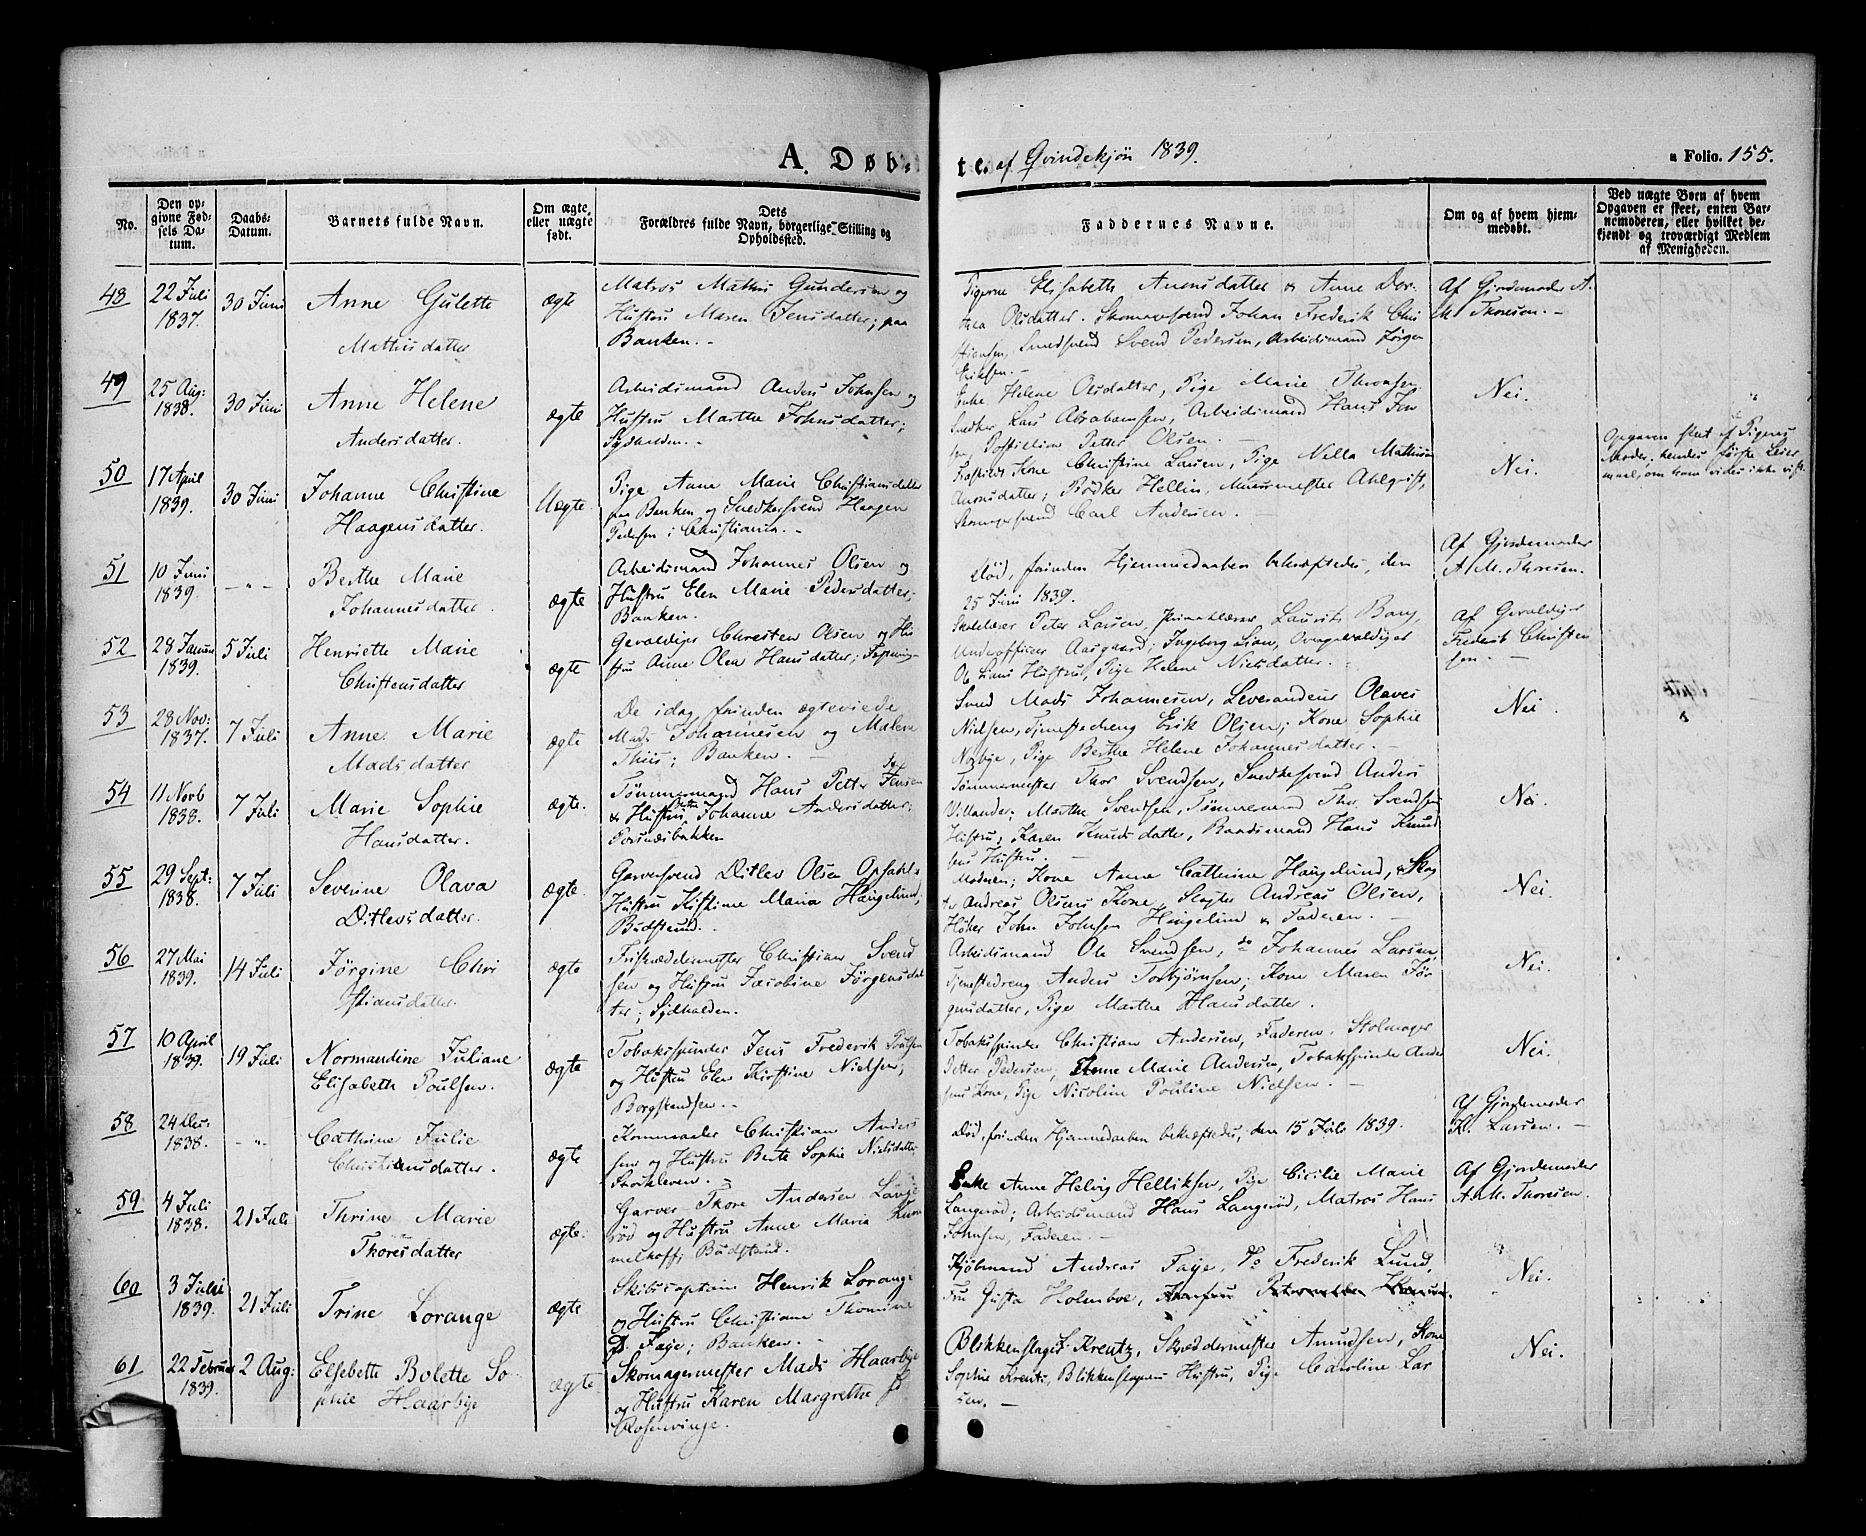 A. Døbte. af Qvindekjøn 1839.
a Folio. 155.
No.
Den opgivne Fødsels Datum.
Daabs-Datum.
Barnets fulde Navn.
Om ægte, eller uægte født.
Forældres fulde Navn, Dets borgerlige Stilling og Opholdsted.
Faddernes Navne.
Om og af hvem hjemmedøbt.
Ved uægte Børn af hvem Opgaven er skeet, enten Barnemoderen, eller hvilket bekjendt og troværdigt Medlem af Menigheden.
48
22 Juli
1837.
30 Juni
Anne Gulette
Mathisdatter
ægte
Matros Mathis Gundersen og
Hustru Maren Jensdatter; paa
Banken. -
Pigerne Elisabeth Amonsdatter & Anne Dor-
thea Olsdatter. Skomagersvend Johan Frederik Chri
stiensen, Smedsvend Svend Pedersen, Arbeidsmand Jørgen
Eriksen. -
Af Gjordemoder A.
M. Thoresen. -
49
25 Aug:
1838.
30 Juni
Anne Helene
Andersdatter.
ægte
Arbeidsmand Anders Johnsen og
Hustru Marthe Johnsdatter;
Sydhalden. -
Enke Helene Olsdatter, Pige Marie Thronsen
Snedker Lars Abrahamsen, Arbeidsmand Hans Jen
sen, Petter Olsen. -
Nei.
50
17 April
1839.
30 Juni
Johanne Christine
Haagensdatter.
Uægte
Pige Anne Marie Christiansdatter
paa Banken og Snedkersvend Haagen
Pedersen i Christiania. -
Kone Christine Larsen, Pige Nella Mathia
Amonsdatter; Bødker Hellin, Muurmester Ahlqvist,
Skomagersvend Carl Andersen. -
Nei.
Opgaven skeet af Pigens
Moder, hendes første Leier
maal, om hvem vides ikke vist.
51
10 Juni
1839.
- " -
Berthe Marie
Johannesdatter.
ægte
Arbeidsmand Johannes Olsen og
Hustru Elen Marie Pedersdatter;
Banken.
død, forinden Hjemmedaaben bekræftedes, den
25 Juni 1839.
Af Gjordemoder
A. M. Thoresen.
52
28 Januar
1839.
5 Juli
Henriette Marie
Christensdatter
ægte
Gevaldiger Christen Olsen og Hu
stru Anne Olea Hansdatter;
Skolelærer Peter Larsen, Laurits Bang,
Underofficer Aasgaard; Ingeborg Lian, Overgevaldiger
Ole Lians Hustru, Pige Helene Nielsdatter. -
Af Gevaldiger
Frederik Christen
sen. -
53
28 Nov:
1837.
7 Juli
Anne Marie
Madsdatter
ægte
De idag forinden ægteviede
Mads Johannesen og Malene
Thiis; Banken. -
Svend Mads Johannesen, Leverandeur Olaves
Nielsen, Tjenestedreng Erik Olsen; Kone Sophie
Norbye, Pige Berthe Helene Johannesdatter. -
Nei.
54
11 Novb
1838.
7 Juli
Marie Sophie
Hansdatter.
ægte.
Tømmermand Hans Petter Jensen
& Hustru Johanne Andersdatter;
Porsnæsbakken
Tømmermester Thor Svendsen, Snedkersvend Anders
Villander; Marthe Svendsen, Tømmermand Thr. Svendsens
Hustru; Karen Knudsdatter, Baadsmand Hans Knud
sens Hustru. -
Nei.
55
29 Sept:
1838.
7 Juli
Severine Olava
Ditlevsdatter.
ægte.
Garversvend Ditlev Olsen Opsahl &
Hustru Kirstine Maria Hængelund;
Budstuud. -
Moderen; Kone Anne Cathrine Hængelund, Slag
ter Andreas Olsens Kone, Slagter Andreas Olsen,
Høker John Johnsen Hingelund & Faderen. -
Nei.
56
27 Mai
1839.
14 Juli
Jørgine Chri
stiansdatter.
ægte
Friskræddermester Christian Svend
sen og Hustru Jacobine Jørgensdat
ter; Sydhalden.
Arbeidsmand Ole Svendsen, do Johannes Larsen,
Tjenestedreng Anders Torbjørnsen; Kone Maren Jør
gensdatter, Pige Marthe Hansdatter.
Nei.
57
10 April
1839.
19 Juli
Normandine Juliane
Elisabeth Poulsen.
ægte
Tobaksspinder Jens Frederik Poulsen
og Hustru Elen Kirstine Nielsen;
Tobaksspinder Christian Andersen, Faderen, Stolmager
Petter Pedersen, Anne Marie Andersen, Tobaksspinder Ander
sens Kone, Pige Nicoline Pouline Nielsen. -
Nei.
58
24 Dec:
1838.
- " -
Cathrine Julie
Christiansdatter.
ægte
Kornmaaler Christian Anders
sen og Hustru Berte Sophie Nielsdatter
Storkleven. -
død, forinden Hjemmedaaben bekræftedes, den 15 Juli 1839.
Af Gjordemoder
K. Larsen. -
59
4 Juli
1838.
21 Juli
Thrine Marie
Thoresdatter
ægte.
Garver Thore Andersen
rød og Hustru Anne Maria Kum
melhoff; Budstuud.
Enke Anne Helvig Helliksen, Pige Cicilie Marie
Langerød; Arbeidsmand Hans Langerød, Matros Hans
Johnsen, Faderen. -
Af Gjordemoder
A. M. Thoresen.
60
3 Julii
1839.
21 Juli
Trine Lorange
ægte
Skibscaptein Henrik Lorange
og Hustru Christiane Thomine
Faye; Banken. -
Kjøbmand Andreas Faye, Do Frederik Lund,
Fru Gusta Holmboe,
Nei.
61
22 Februar
1839.
2 Aug:
Elsebette Bolette So-
phie Haarbye
ægte
Skomagermester Mads Haarbye
og Hustru Karen Margrethe
Rosenvinge.
Blikkenslager Kreutz, Skræddermester Amundsen, Kone
Sophie Kreutz, Blikkenslagerens Hustru, Pige Caroline Lar
sen. -
Nei.